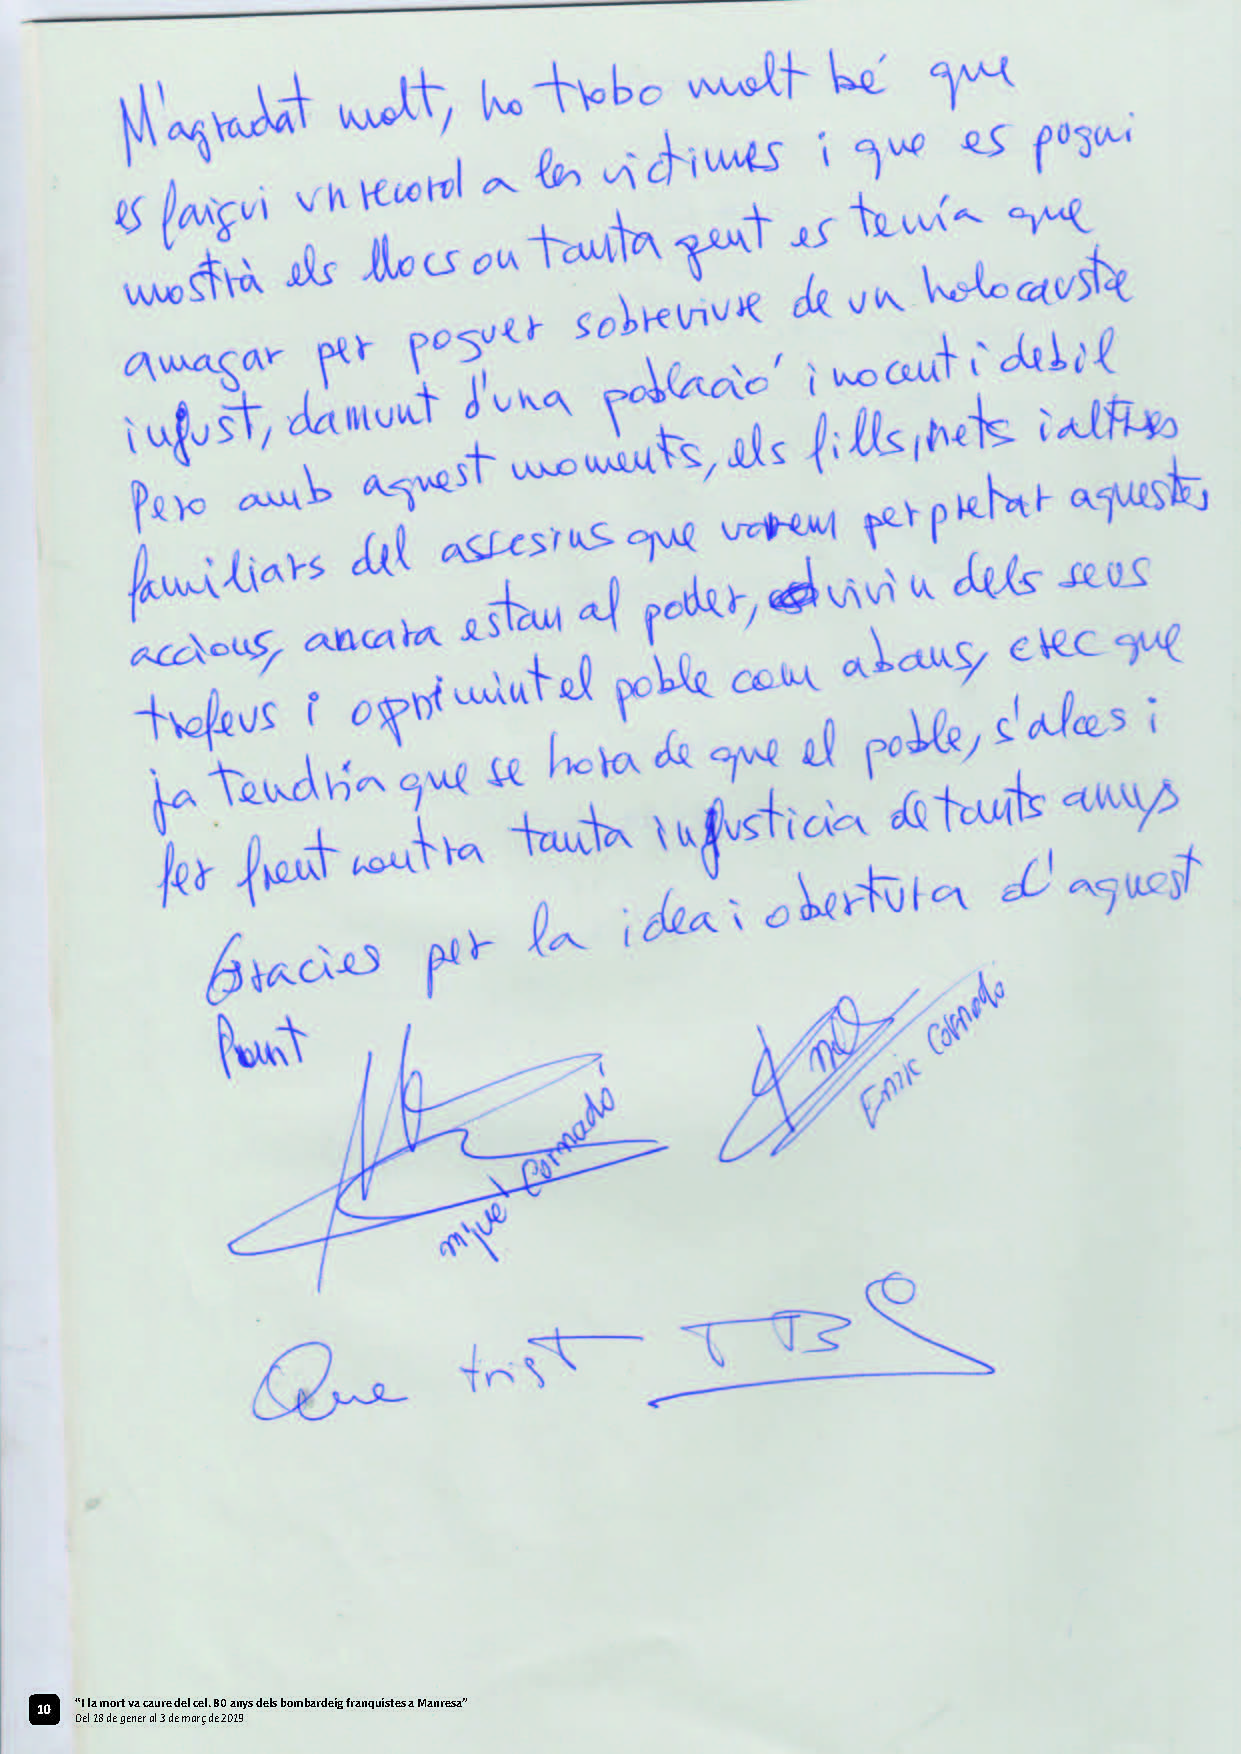 M'agradat molt, ho trobo molt bé que
es faigui un record a les victimes i que es pogui
mostrà els llocs on tanta gent es tenía que
amagar per poguer sobreviure de un holocauste
injust, damunt d'una població inocent i debil
Pero amb aquest moments, els fills, nets i altres
familiars del assesins que varem perpretar aquestes
accions, ancara estan al poder, vivin dels seus
trofeus i opprimint el poble com abans, crec que
ja tendria que se hora de que el poble, s'alces i
fer frent contra tanta injusticia de tants anys
Gracies per la idea i obertura d'aquest
Punt
Enric Cornado
Miquel Cornadó
Que trist
10
"I la mort va caure del cel. 80 anys dels bombardeig franquistes a Manresa"
Del 18 de gener al 3 de març de 2019